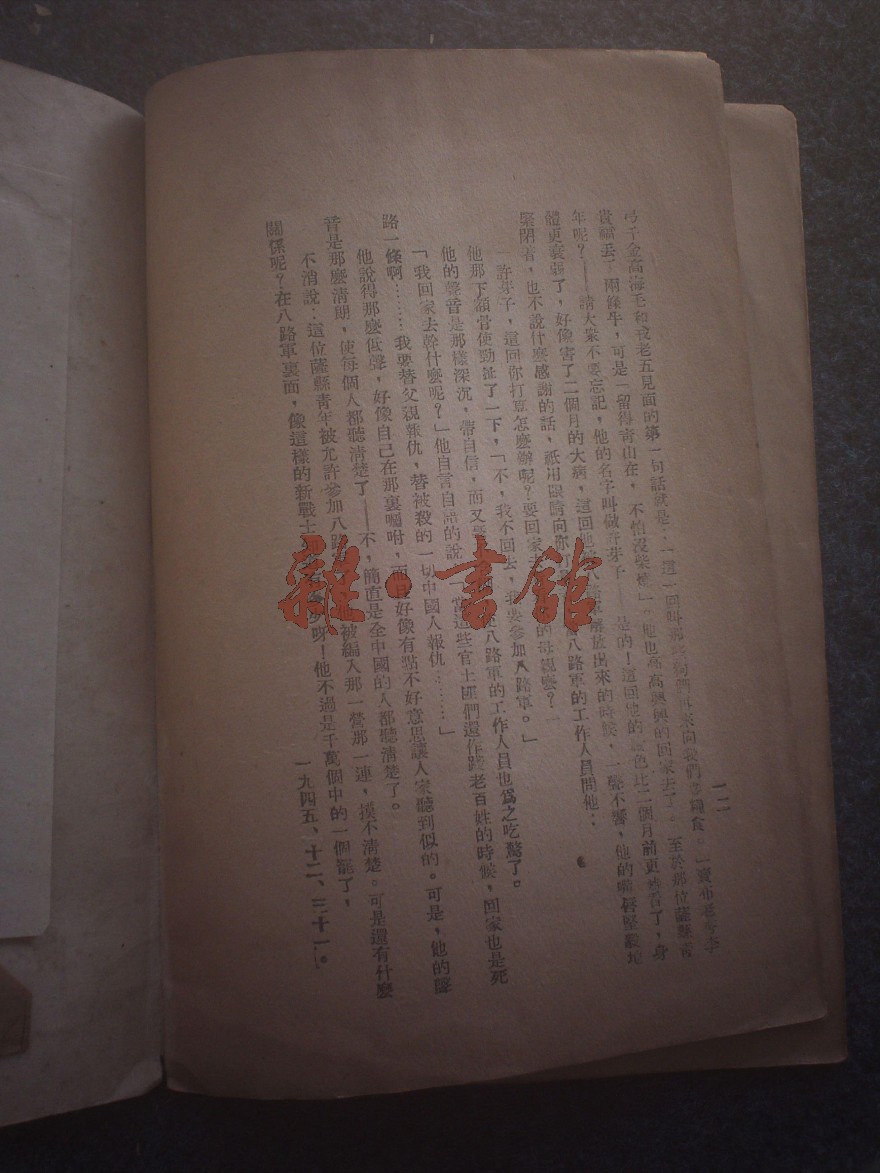 一二
弓子金高海毛和戎老五見面的第一句話就是：「這一回叫那些狗們再來向我們要糧食。」賣布老岑李
貴福丟了兩條牛，可是「留得青山在，不怕沒柴燒」。他也高高興興的回家去了。至於那位薩縣青
年呢？——請大衆不要忘記，他的名字叫做許芽子——是的！這回他的 色比二個月前更 了，身
體更衰弱了，好像害了二個月的大病，這回他 八路軍解放出來的時候，一聲不響，他的嘴唇堅緊地
緊閉着，也不說什麼感謝的話，祇用眼睛向你 八路軍的工作人員問他：
「許芽子，這回你打算怎麼辦呢？要回家去 的母親麼？」
他那下顎骨使勁祉了一下，「不，我不回去，我要參加八路軍。」
他的聲音是那樣深沉，帶自信，而又 八路軍的工作人員也爲之吃驚了。
「我回家去幹什麼呢？」他自言自語的說，「當這些官土匪們還作踐老百姓的時候，回家也是死
路一條啊………我要替父親報仇，替被殺的一切中國人報仇………」
他說得那麼低聲，好像自己在那裏囑咐，而且好像有點不好意思讓人家聽到似的。可是，他的聲
音是那麼清朗，使每個人都聽清楚了——不，簡直是全中國的人都聽清楚了。
不消說：這位薩縣青年被允許參加八路 被編入那一營那一連，摸不清楚。可是還有什麼
關係呢？在八路軍裏面，像這樣的新戰士 呀！他不過是千萬個中的一個罷了，
一九四五、十二、三十一。
雜·書館